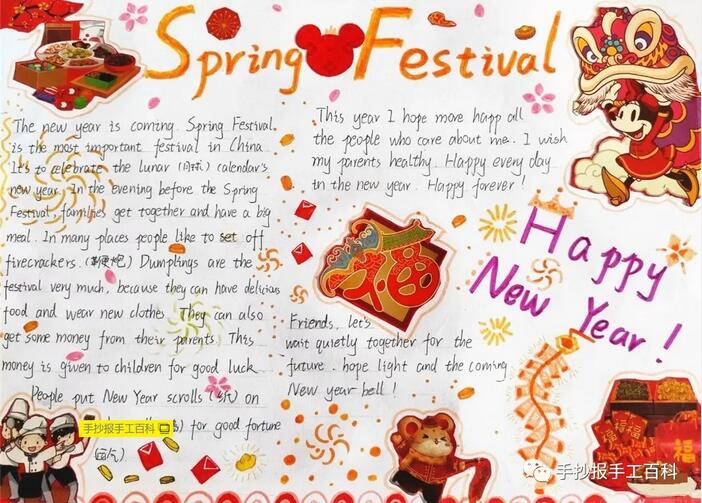 Spring Festival
The new year is coming. Spring Festival
is the most important festival in China
It's to celebrate the lunar calendar's
new year. In the evening before the Spring
Festival families get together and have a big
meal. In many places people like to set off
firecrackers. (鞭炮) Dumplings are the
festival very much, because they can have delicious
food and wear new clothes. They can also
get some money from their parents. This
money is given to children for good luck.
People put New Year scrolls on
for good fortune
This year I hope more happ all
the people who care about me. I wish
my parents healthy. Happy every day
in the new year. Happy forever!
福
Friends, let's
wait quietly together for the
future. hope light and the coming
New year bell!
Happy
New Year!
手抄报手工百科
福 福
福
手抄报手工百科